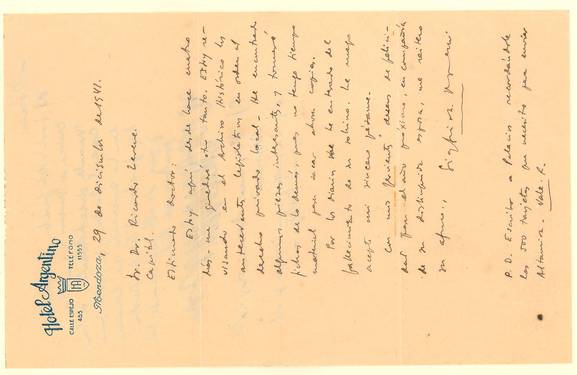 Hotel Argentino
CALLE ESPEJO TELEFONO
455 11555
Mendoza, 29 de diciembre de 1941.
Sr. Dr. Ricardo Levene.
Capital.
Estimado doctor:
Estoy aquí desde hace cuatro
días, me quedaré otro tanto. Estoy re-
visando en el Archivo Histórico los
antecedentes legislativos en orden al
derecho privado local. He encontrado
algunas piezas interesantes, y tomaré
fichas de lo demás, pues no tengo tiempo
material para sacar ahora copias.
Por los diarios me he enterado del
fallecimiento de su sobrino. Le ruego
acepte mi sincero pésame.
Con mis fervientes deseos de felici-
dad para el año próximo, en compañía
de su distinguida esposa, me reitero
su afmo.,
P.D. Escribo a Palacios recordándole
las 500 tarjetas que necesito para enviar
Altamira. Vale. R.